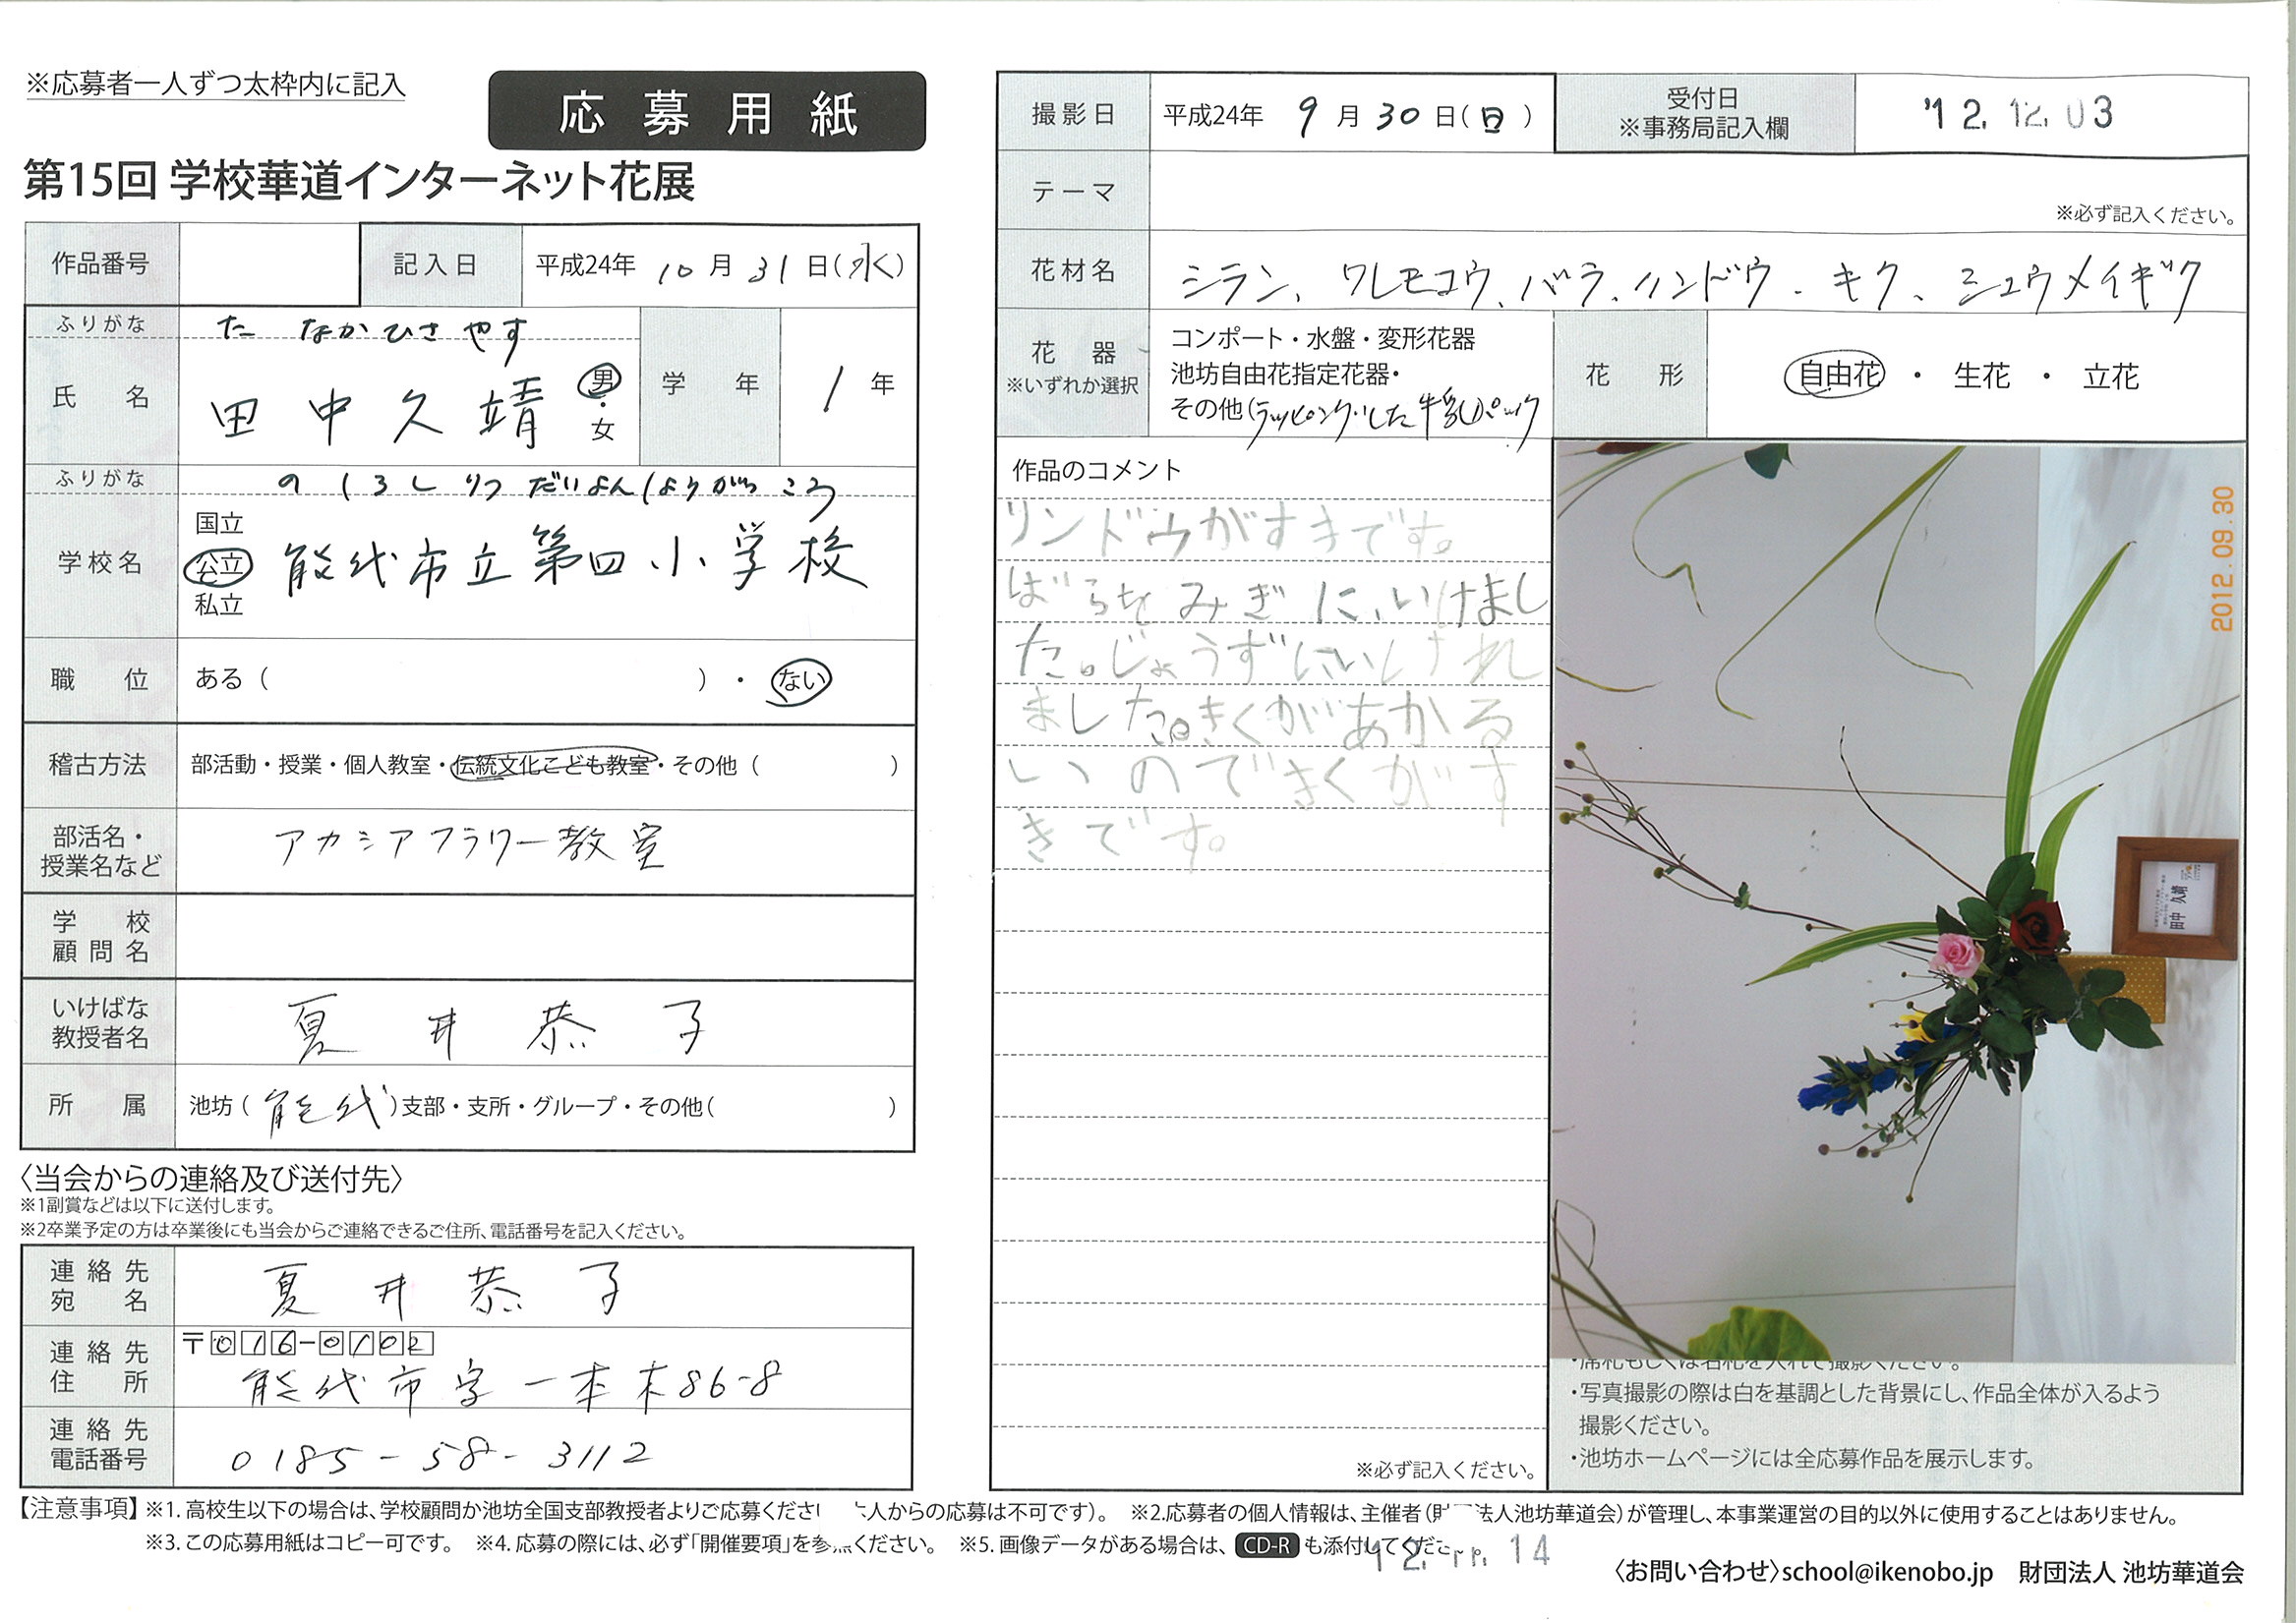 ※応募者一人ずつ太枠内に記入
応募用紙
第15回 学校華道インターネット花展
作品番号
記入日 平成24年 10月31日(水)
ふりがな た なか ひさ やす
氏名 田中久靖 男・女
学年 1年
ふりがな のしろしりつ だいよんしょうがっこう
学校名 国立 公立 私立 能代市立第四小学校
職位 ある( )・ない
稽古方法 部活動・授業・個人教室・伝統文化こども教室・その他( )
部活名・授業名など アカシアフラワー教室
学校顧問名
いけばな教授者名 夏井恭子
所属 池坊(能代)支部・支所・グループ・その他( )
〈当会からの連絡及び送付先〉
※1副賞などは以下に送付します。
※2卒業予定の方は卒業後にも当会からご連絡できるご住所、電話番号を記入ください。
連絡先宛名 夏井恭子
連絡先住所 〒016-0102
能代市字一本木86-8
連絡先電話番号 0185-58-3112
撮影日 平成24年 9月30日(日)
受付日 ※事務局記入欄 '12.12.03
テーマ
※必ず記入ください。
花材名 シラン、ワレモコウ、バラ、リンドウ、キク、シュウメイギク
花器 ※いずれか選択
コンポート・水盤・変形花器
池坊自由花指定花器・
その他(ラッピングした牛乳パック
花形 自由花・生花・立花
作品のコメント
リンドウがすきです。
ばらをみぎに、いけまし
た。じょうずにいけれ
ました。きくがあかる
いのできくがす
きです。
※必ず記入ください。
2012.09.30
田中 久靖
・席札もしくは名札を入れて撮影ください。
・写真撮影の際は白を基調とした背景にし、作品全体が入るよう
撮影ください。
・池坊ホームページには全応募作品を展示します。
【注意事項】※1. 高校生以下の場合は、学校顧問か池坊全国支部教授者よりご応募くださ 人からの応募は不可です)。 ※2.応募者の個人情報は、主催者(財 法人池坊華道会)が管理し、本事業運営の目的以外に使用することはありません。
※3. この応募用紙はコピー可です。 ※4. 応募の際には、必ず「開催要項」を参 ください。 ※5. 画像データがある場合は、 CD-R も添付してくだ
14
〈お問い合わせ〉school@ikenobo.jp 財団法人 池坊華道会